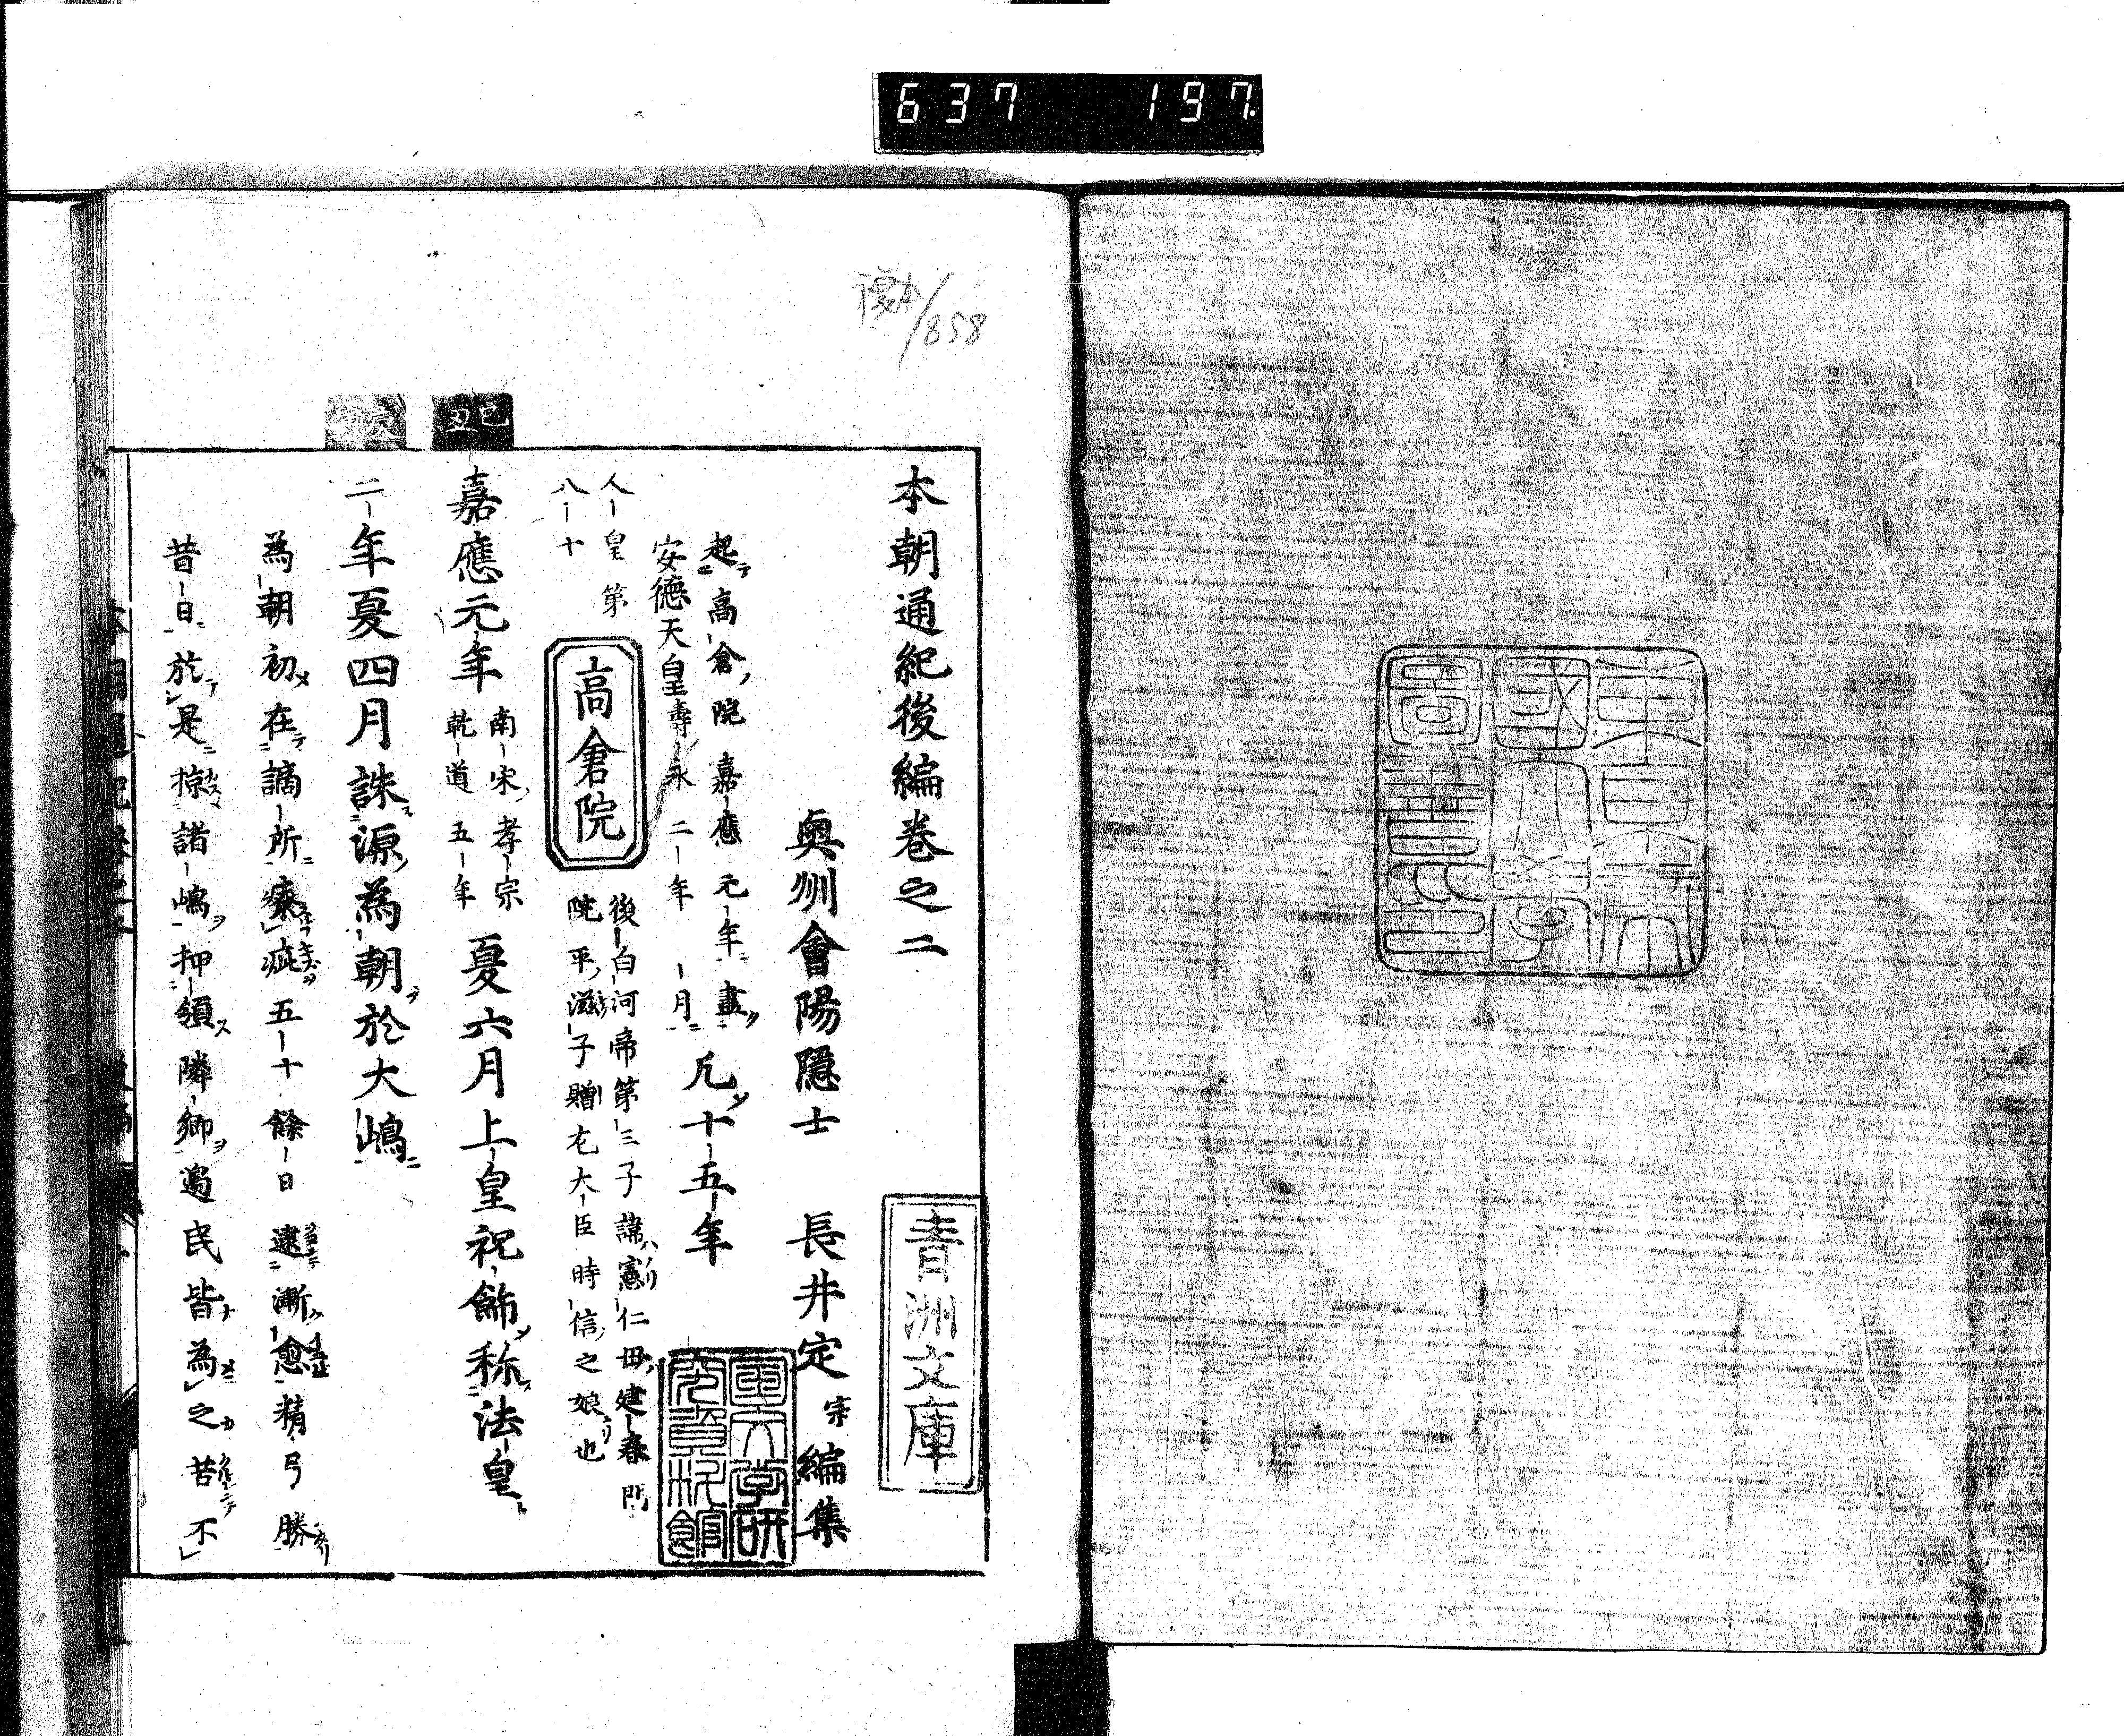 637 197
東京帝
國大學
圖書印
複本/858
本朝通紀後編卷之二
青洲文庫
奥州會陽隱士 長井定宗編集
起高倉院嘉應元年盡
安德天皇壽永二年一月
凡十五年
人皇第
八十
高倉院
後白河帝第三子諱憲仁母建春門
院平滋子贈左大臣時信之娘也
己丑
嘉應元年
南宋孝宗
乾道五年
夏六月上皇祝餝称法皇
庚寅
二年夏四月誅源為朝於大嶋
為朝初在謫所療疵五十餘日遂漸愈精弓勝
昔日於是掠諸嶋押領隣鄉嶋民皆為之苦不